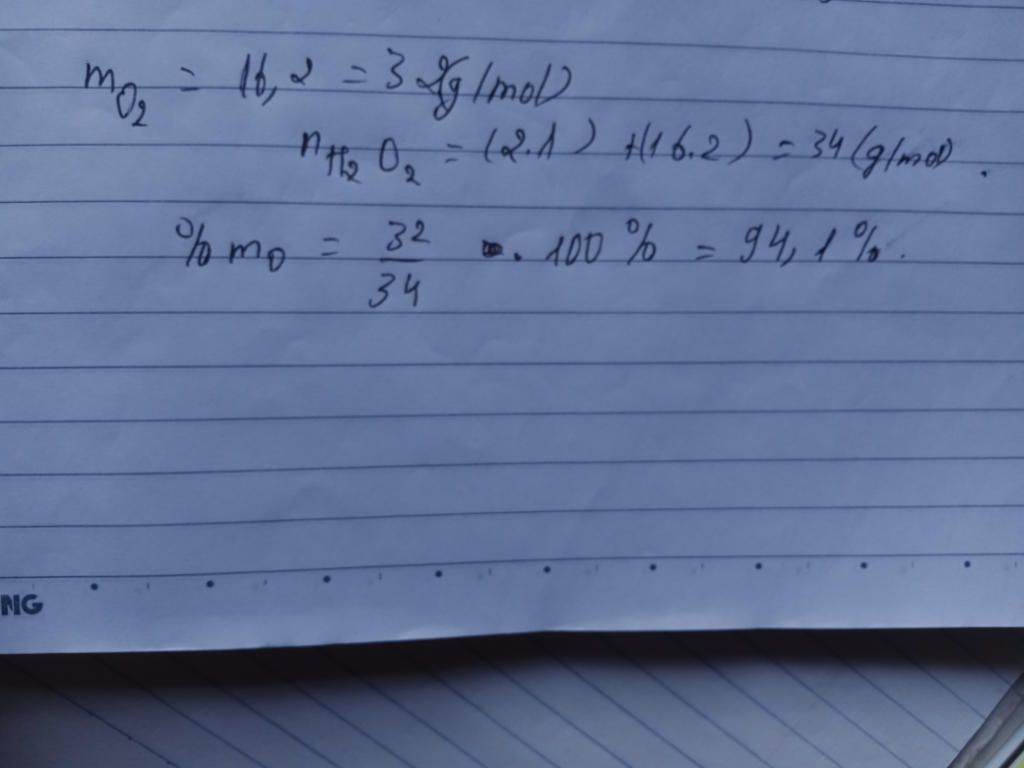 m O₂ = 16,2 = 32g/mol)
n H₂O₂ = (2.1) + (16.2) = 34 (g/mol).
% mO = 32/34 . 100% = 94,1%.
NG